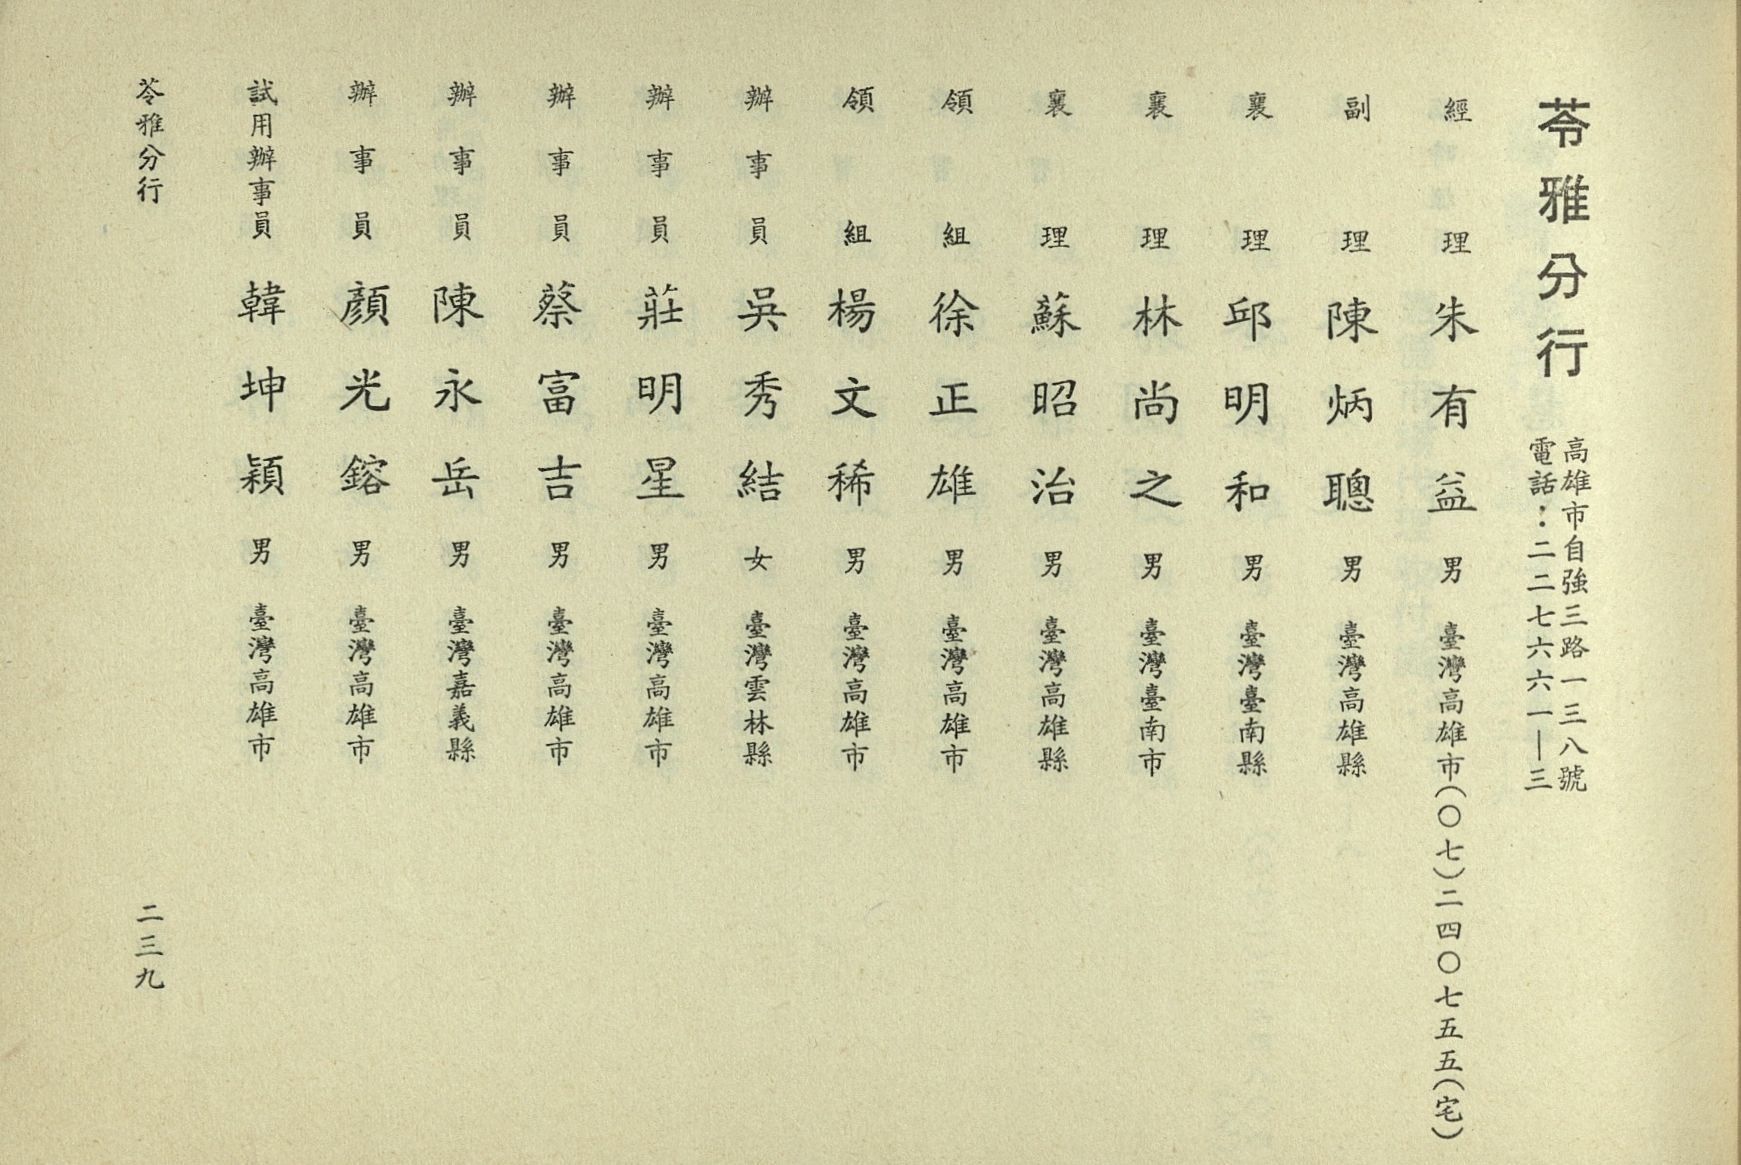 苓雅分行
高雄市自強三路一三八號
電話：二二七六六一—三
經理 朱有益 男 臺灣高雄市(〇七)二四〇七五五(宅)
副理 陳炳聰 男 臺灣高雄縣
襄理 邱明和 男 臺灣臺南縣
襄理 林尚之 男 臺灣臺南市
襄理 蘇昭治 男 臺灣高雄縣
領組 徐正雄 男 臺灣高雄市
領組 楊文稀 男 臺灣高雄市
辦事員 吳秀結 女 臺灣雲林縣
辦事員 莊明星 男 臺灣高雄市
辦事員 蔡富吉 男 臺灣高雄市
辦事員 陳永岳 男 臺灣嘉義縣
辦事員 顏光鎔 男 臺灣高雄市
試用辦事員 韓坤穎 男 臺灣高雄市
苓雅分行
二三九